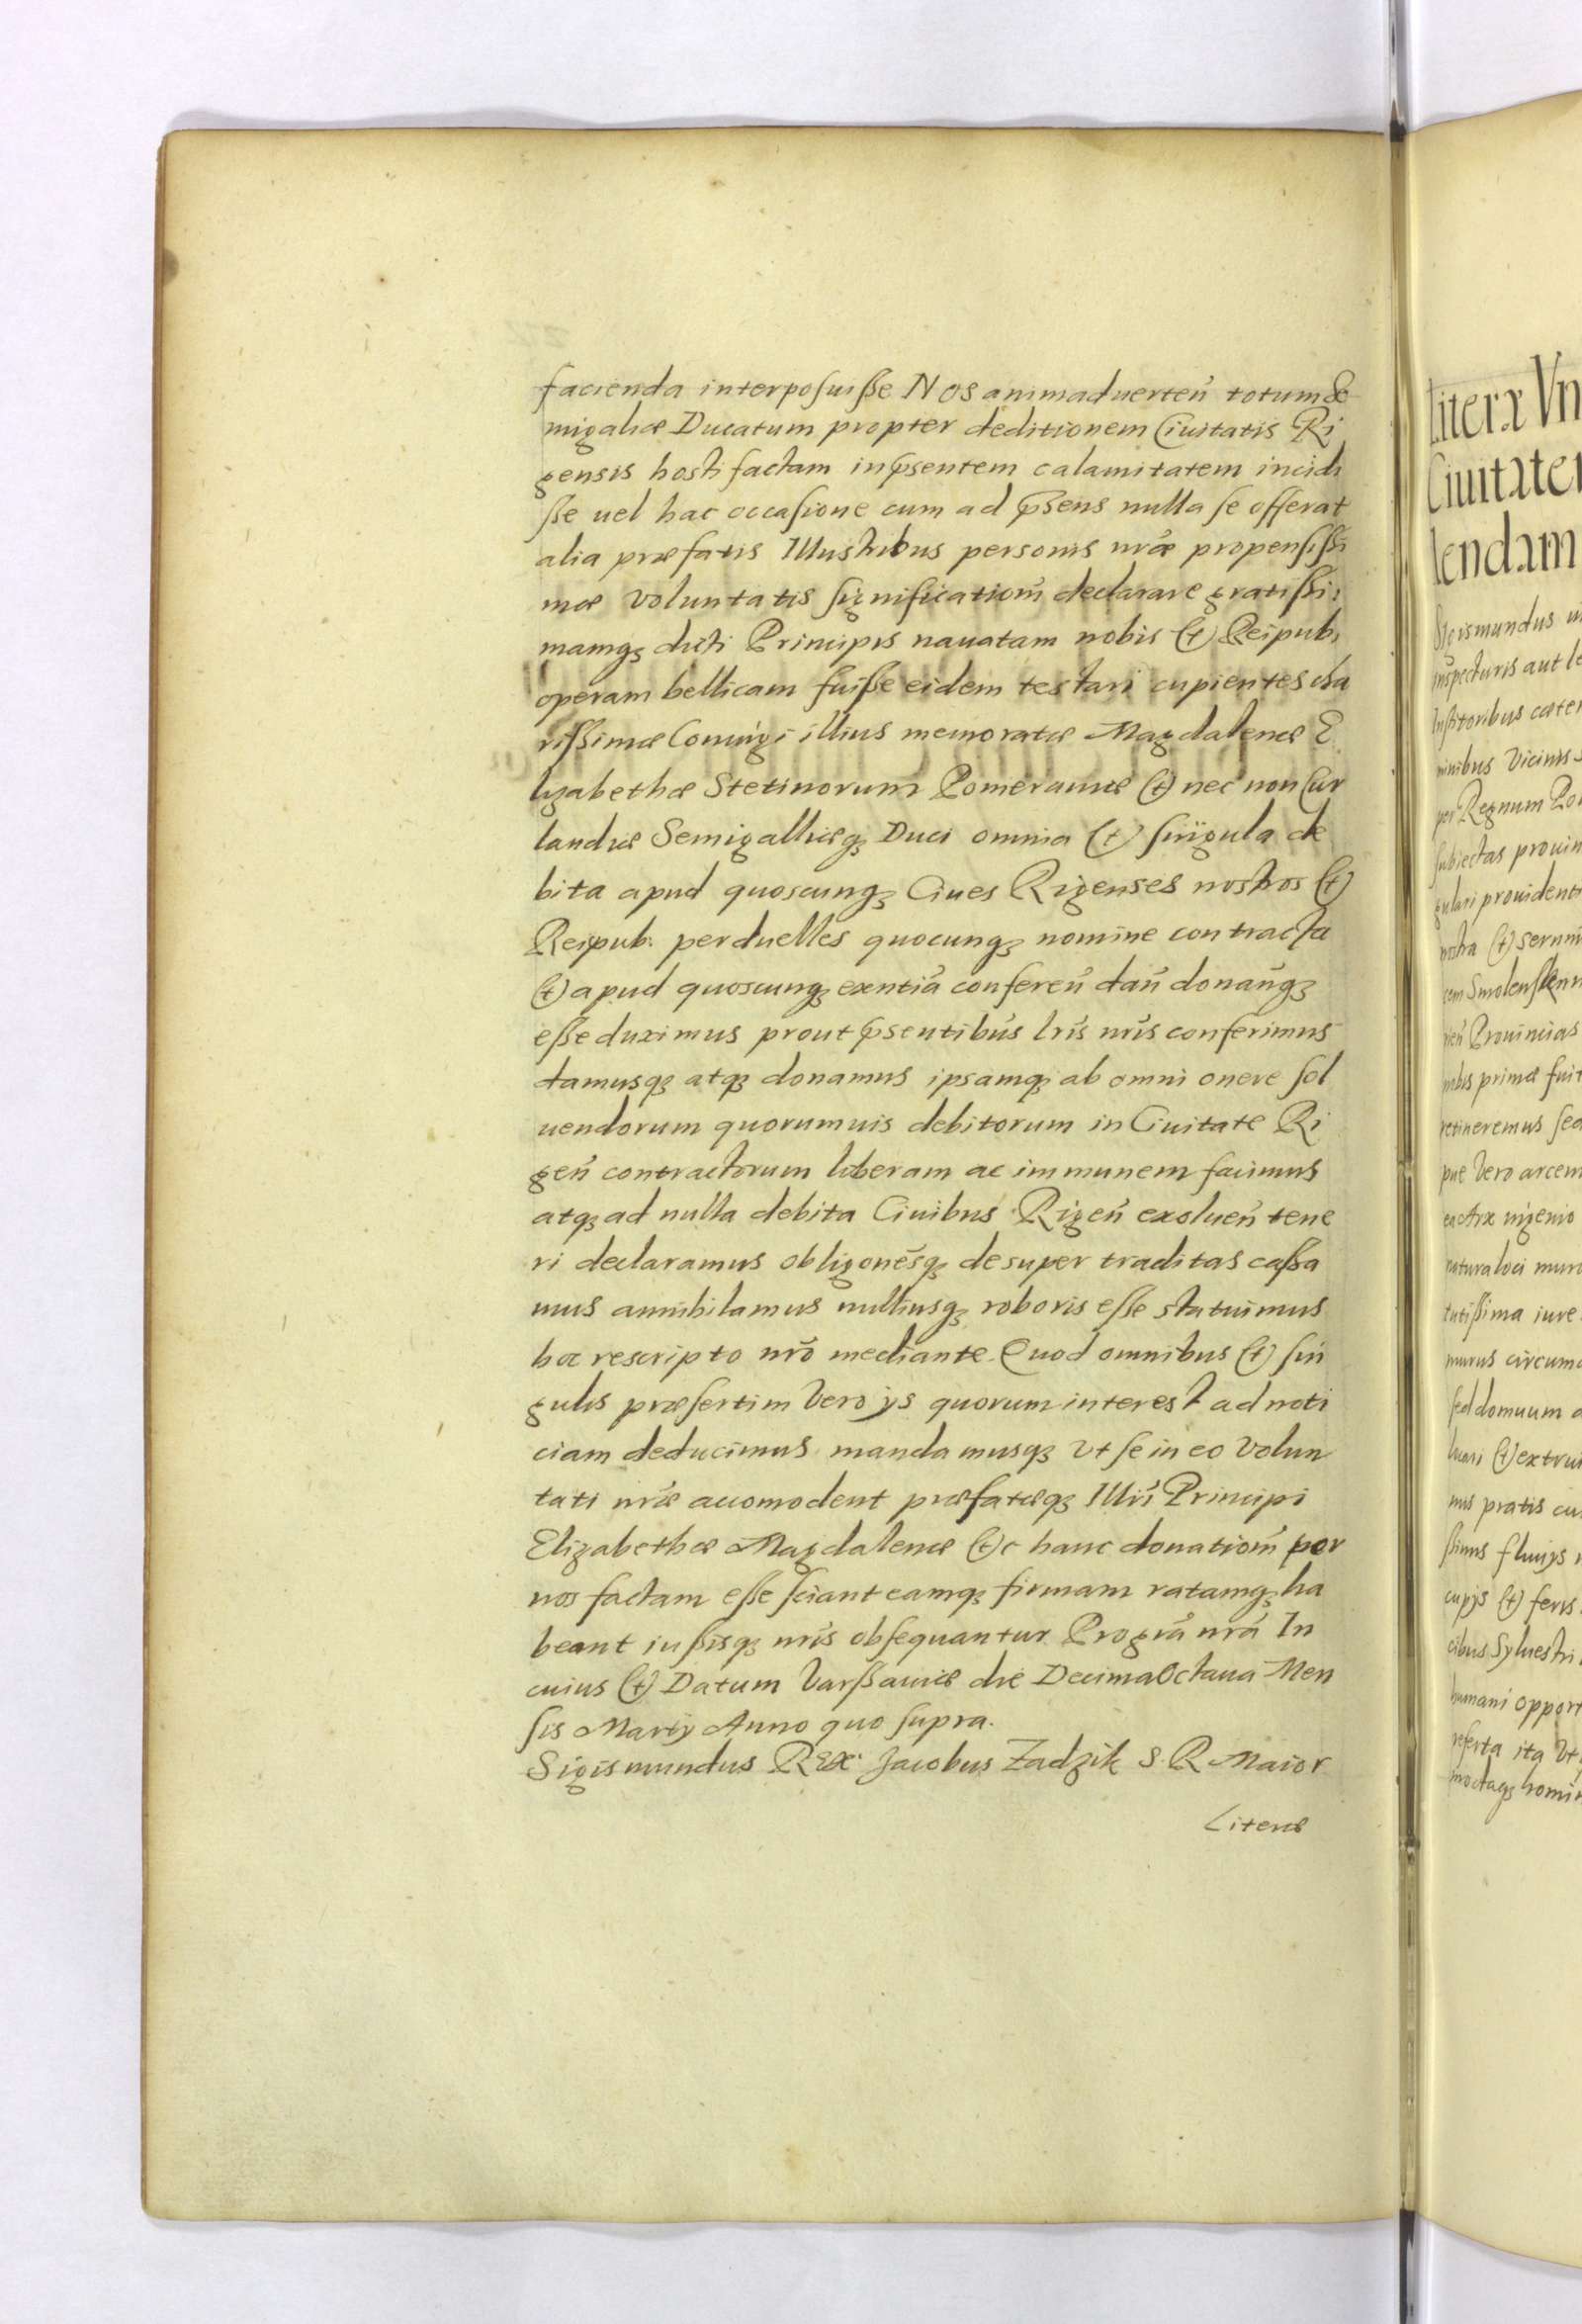 facienda interposuisse Nos animaduerteñ totum Se
migaliæ Ducatum propter deditionem Ciuitatis Ri
gensis hosti factam in p̃sentem calamitatem incidi
sse uel hac occasione cum ad p̃sens nulla se offerat
alia præfatis Illustribus personis nræ̃ propensissi
mæ voluntatis significationẽ declarare gratissi:
mamqꝫ dicti Principis nauatam nobis (t) Reipub:
operam bellicam fuisse eidem testari cupientes cha
rissimæ Coniugi illius memoratæ Magdalenæ E
lizabethæ Stetinorum Pomeraniæ (t) nec non Cur
landiæ Semigalliæqꝫ Duci omnia (t) singula de
bita apud quoscunqꝫ Ciues Rigenses nostros (t)
Reipub: perduelles quocunqꝫ nomine contracta
(t) apud quoscunqꝫ exñtia confereñ dañ donañqꝫ
esse duximus prout p̃sentibus lris̃ nris̃ conferimus
damusqꝫ atqꝫ donamus ipsamqꝫ ab omni onere sol
uendorum quorumuis debitorum in Ciuitate Ri
geñ contractorum liberam ac immunem facimus
atqꝫ ad nulla debita Ciuibus Rigeñ exolueñ tene
ri declaramus obligonẽsqꝫ desuper traditas cassa
mus annihilamus nulliusqꝫ roboris esse statuimus
hoc rescripto nrõ mediante. Quod omnibus (t) sin
gulis præsertim vero ijs quorum interest ad noti
ciam deducimus mandamusqꝫ vt se in eo volun
tati nræ̃ accomodent præfatæqꝫ Illri̇̃ Principi
Elizabethæ Magdalenæ (t)c hanc donationẽ per
nos factam esse sciant eamqꝫ firmam ratamqꝫ ha
beant iussisqꝫ nris̃ obsequantur Pro grã nrã In
cuius (t) Datum Varssauiæ die Decima Octaua Men
sis Martij Anno quo supra.
Sigismundus Rex. Jacobus Zadzik S. R Maior
Literæ
Literæ Vn
Ciuitate
lendam
Sigismundus
inspecturis aut le
Institoribus cæter
minibus Vicinis
per Regnum Po
subiectas prouin
gulari prouident
nostra (t) sereni
cem Smolenskn
Prouincias
nobis primæ fuit
retineremus sed
puè vero arcem
ea Arx ingenio
natura loci muro
tutissima iure
murus circum
sed domuum a
(t) extrui
mis pratis cu
ssimus fluuijs
cupijs (t) feris
cibus Syluestri
humani opport
referta ita vt
homin